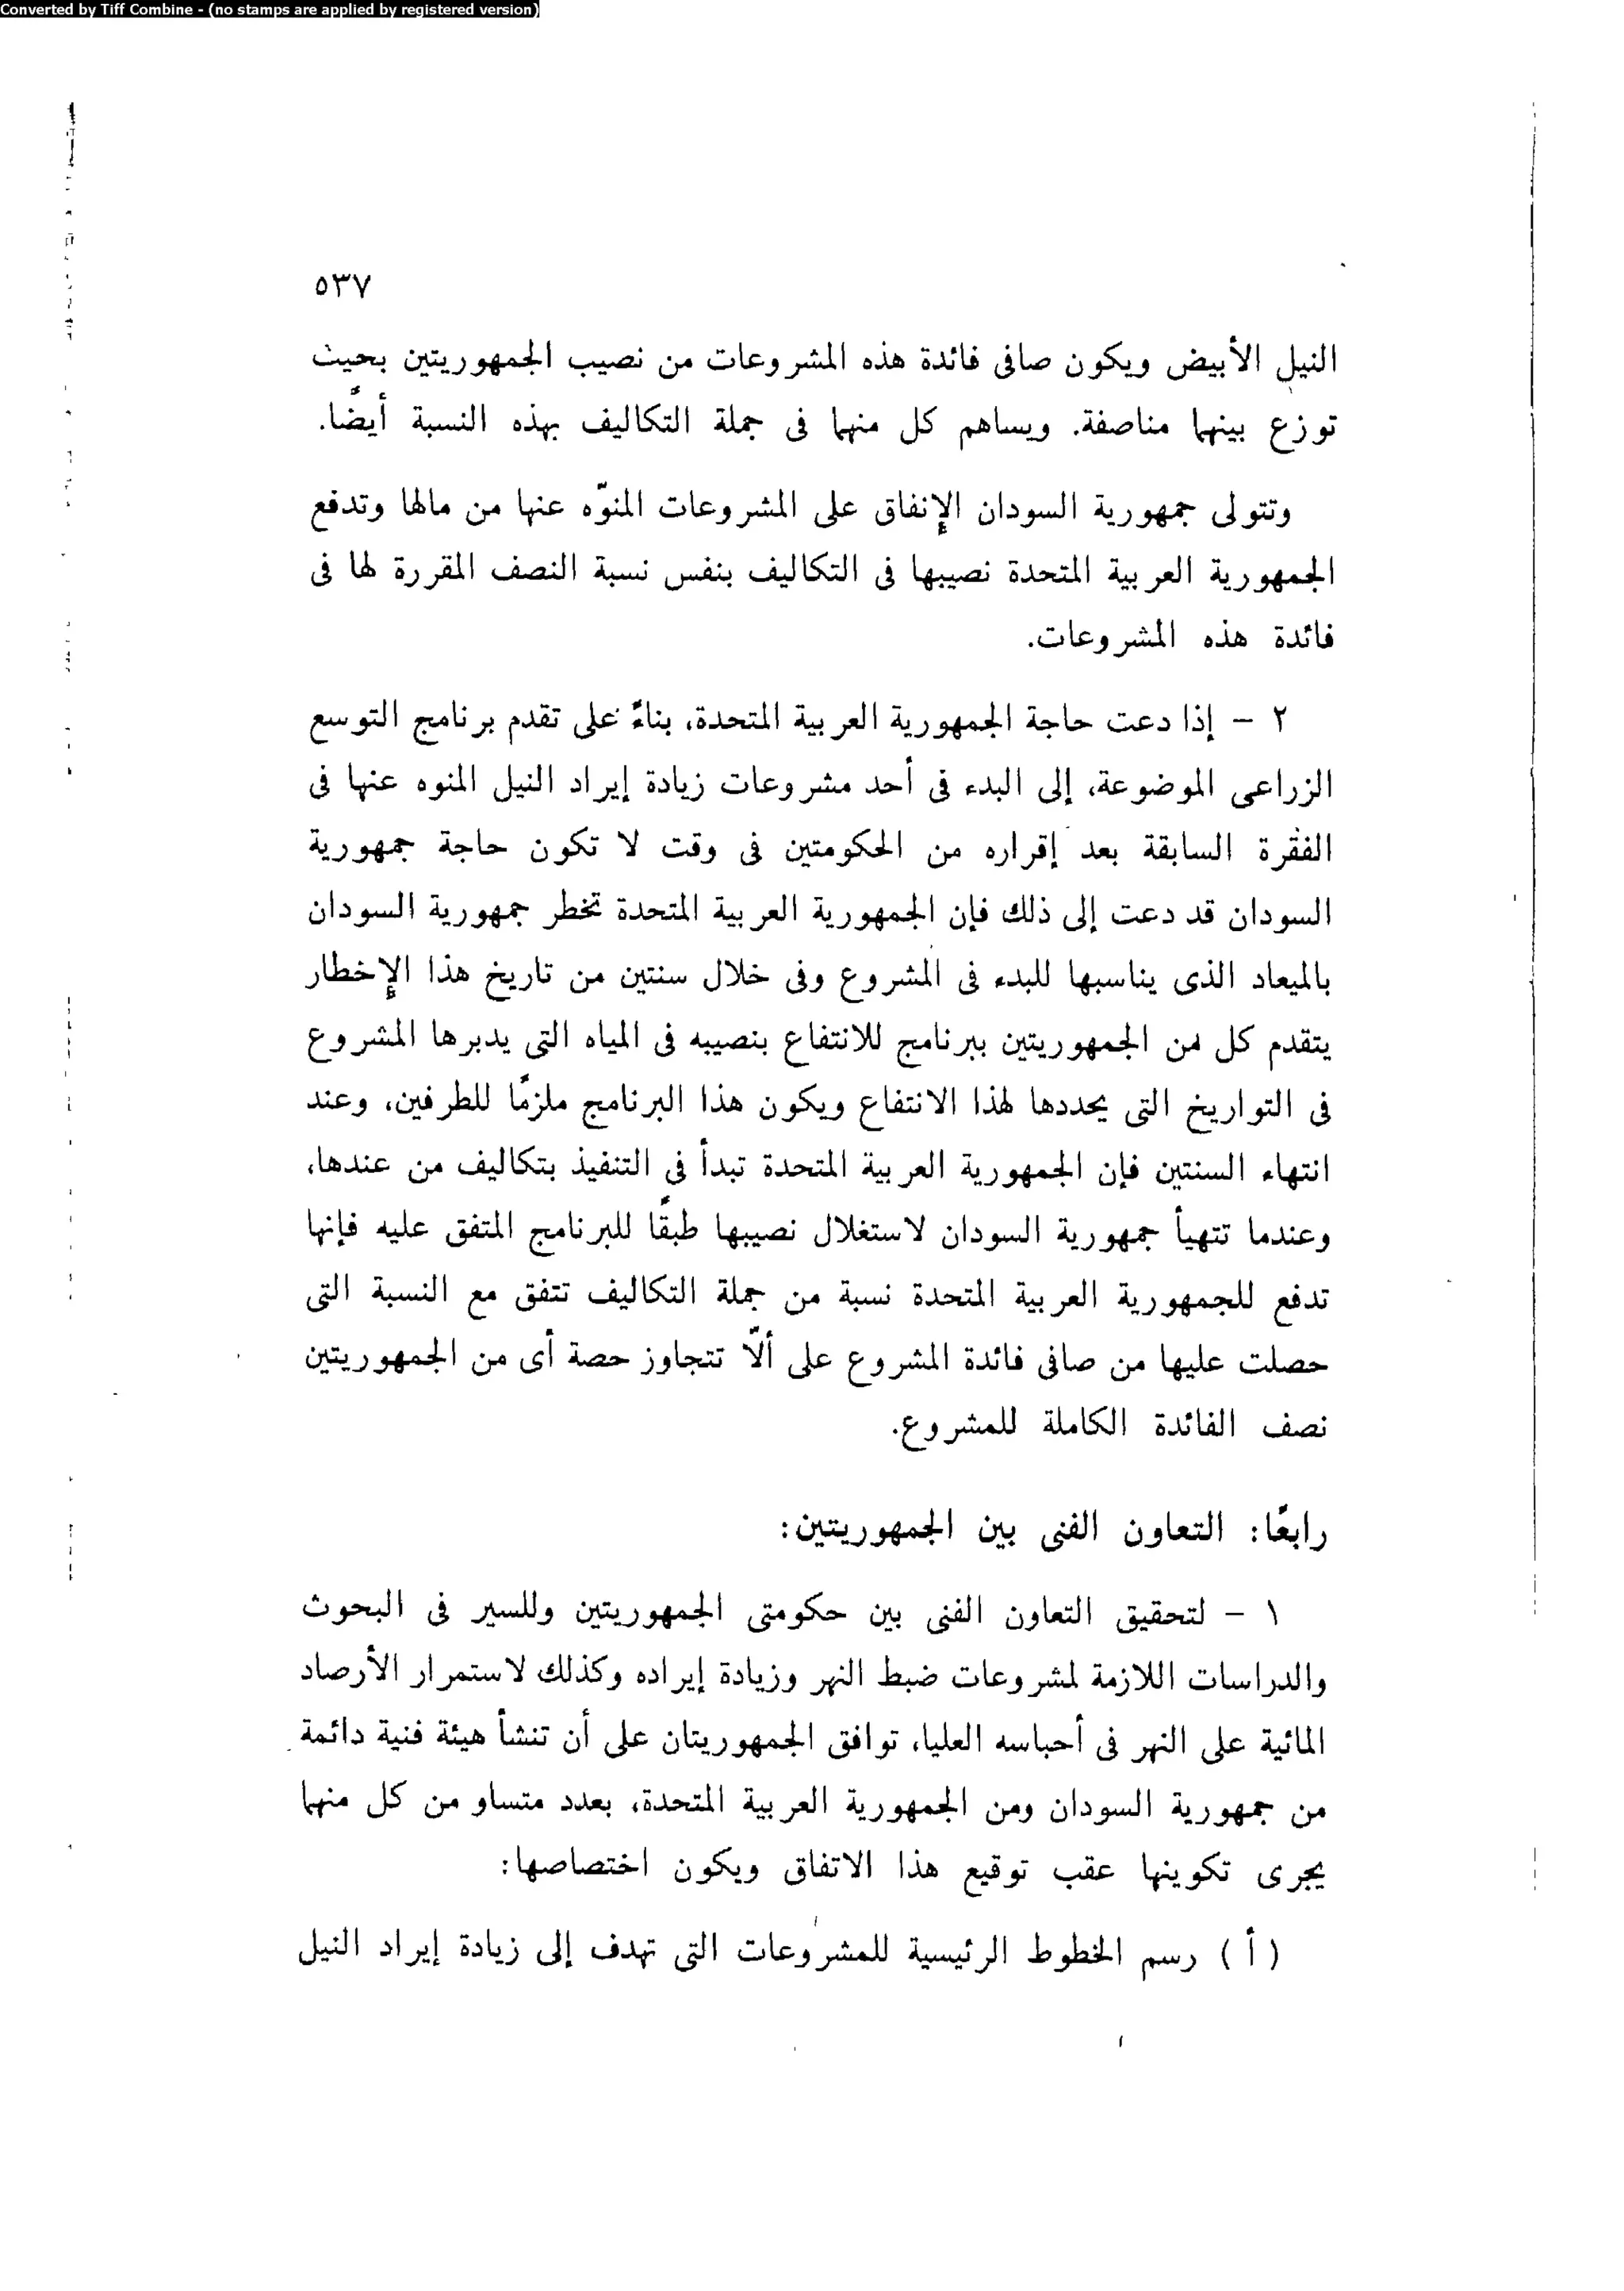 Converted by Tiff Combine - (no stamps are applied by registered version)
٥٣٧
النيل الأبيض ويكون صافى فائدة هذه المشروعات من نصيب الجمهوريتين بحيث
توزع بينهما مناصفة. ويساهم كل منهما فى جملة التكاليف بهذه النسبة أيضًا.
وتتولى جمهورية السودان الإنفاق على المشروعات المنوّه عنها من مالها وتدفع
الجمهورية العربية المتحدة نصيبها فى التكاليف بنفس نسبة النصف المقررة لها فى
فائدة هذه المشروعات.
٢ – إذا دعت حاجة الجمهورية العربية المتحدة، بناءً على تقدم برنامج التوسع
الزراعى الموضوعة، إلى البدء فى أحد مشروعات زيادة إيراد النيل المنوه عنها فى
الفقرة السابقة بعد إقراره من الحكومتين فى وقت لا تكون حاجة جمهورية
السودان قد دعت إلى ذلك فإن الجمهورية العربية المتحدة تخطر جمهورية السودان
بالميعاد الذى يناسبها للبدء فى المشروع وفى خلال سنتين من تاريخ هذا الإخطار
يتقدم كل من الجمهوريتين ببرنامج للانتفاع بنصيبه فى المياه التى يدبرها المشروع
فى التواريخ التى يحددها لهذا الانتفاع ويكون هذا البرنامج ملزمًا للطرفين، وعند
انتهاء السنتين فإن الجمهورية العربية المتحدة تبدأ فى التنفيذ بتكاليف من عندها،
وعندما تتهيأ جمهورية السودان لاستغلال نصيبها طبقًا للبرنامج المتفق عليه فإنها
تدفع للجمهورية العربية المتحدة نسبة من جملة التكاليف تتفق مع النسبة التى
حصلت عليها من صافى فائدة المشروع على ألّا تتجاوز حصة أى من الجمهوريتين
نصف الفائدة الكاملة للمشروع.
رابعًا: التعاون الفنى بين الجمهوريتين:
١ – لتحقيق التعاون الفنى بين حكومتى الجمهوريتين وللسير فى البحوث
والدراسات اللازمة لمشروعات ضبط النهر وزيادة إيراده وكذلك لاستمرار الأرصاد
المائية على النهر فى أحباسه العليا، توافق الجمهوريتان على أن تنشأ هيئة فنية دائمة
من جمهورية السودان ومن الجمهورية العربية المتحدة، بعدد متساو من كل منهما
يجرى تكوينها عقب توقيع هذا الاتفاق ويكون اختصاصها:
( أ ) رسم الخطوط الرئيسية للمشروعات التى تهدف إلى زيادة إيراد النيل